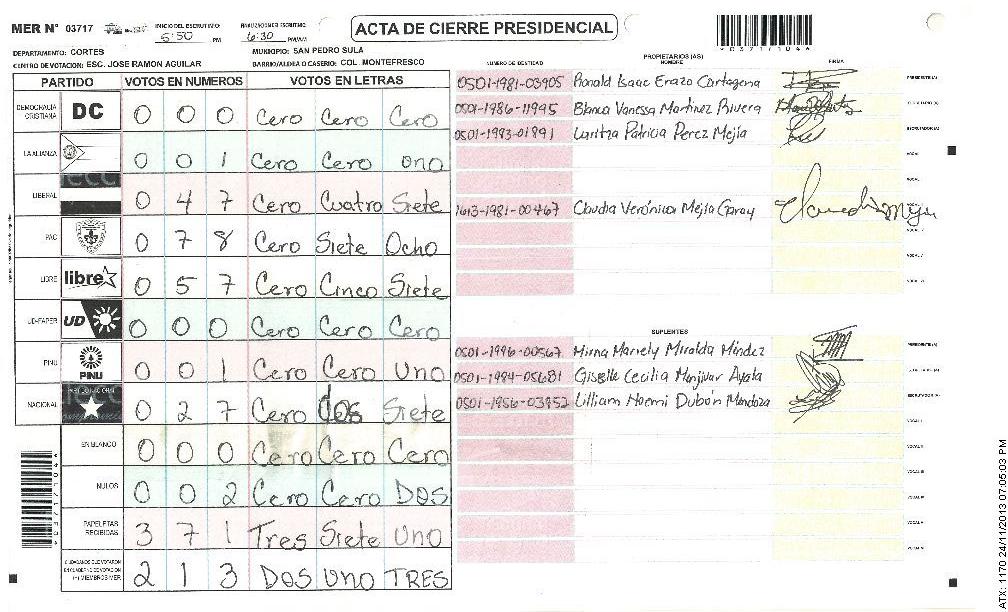 MER N° 03717
INICIO DEL ESCRUTINIO 5:50 PM
FINALIZACION DE ESCRUTINIO 6:30 PM/AM
ACTA DE CIERRE PRESIDENCIAL
DEPARTAMENTO: CORTES
MUNICIPIO: SAN PEDRO SULA
CENTRO DE VOTACION: ESC. JOSE RAMON AGUILAR
BARRIO/ALDEA O CASERIO: COL. MONTEFRESCO
PARTIDO VOTOS EN NUMEROS VOTOS EN LETRAS
DEMOCRACIA CRISTIANA DC 0 0 0 Cero Cero Cero
LA ALIANZA 0 0 1 Cero Cero Uno
LIBERAL 0 4 7 Cero Cuatro Siete
PAC 0 7 8 Cero Siete Ocho
LIBRE libre 0 5 7 Cero Cinco Siete
UD-FAPER UD 0 0 0 Cero Cero Cero
PINU PINU 0 0 1 Cero Cero Uno
NACIONAL 0 2 7 Cero Dos Siete
EN BLANCO 0 0 0 Cero Cero Cero
NULOS 0 0 2 Cero Cero DOS
PAPELETAS RECIBIDAS 3 7 1 Tres Siete Uno
CIUDADANOS QUE VOTARON EN CUADERNO DE VOTACION (+) MIEMBROS MER 2 1 3 DOS Uno TRES
NUMERO DE IDENTIDAD
PROPIETARIOS (AS)
NOMBRE
FIRMA
0501-1981-03905 Ronald Isaac Erazo Cartagena PRESIDENTE (A)
0501-1986-11995 Blanca Vanessa Martinez Rivera
0501-1993-01891 Laritza Patricia Perez Mejia ESCRUTADOR (A)
VOCAL
VOCAL
1613-1981-00467 Claudia Verónica Mejia Garay
SUPLENTES
0501-1996-00567 Mirna Mariely Miralda Mindez PRESIDENTE (A)
0501-1994-05681 Giselle Cecilia Menjivar Ayala
0501-1956-03952 Lilliam Noemi Dubón Mendoza ESCRUTADOR (A)
ATX: 1170 24/11/2013 07:05:03 PM